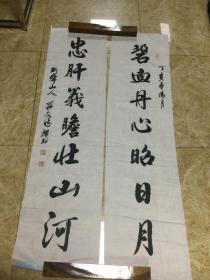 丁亥春陽月
碧血丹心昭日月
忠肝義膽壯山河